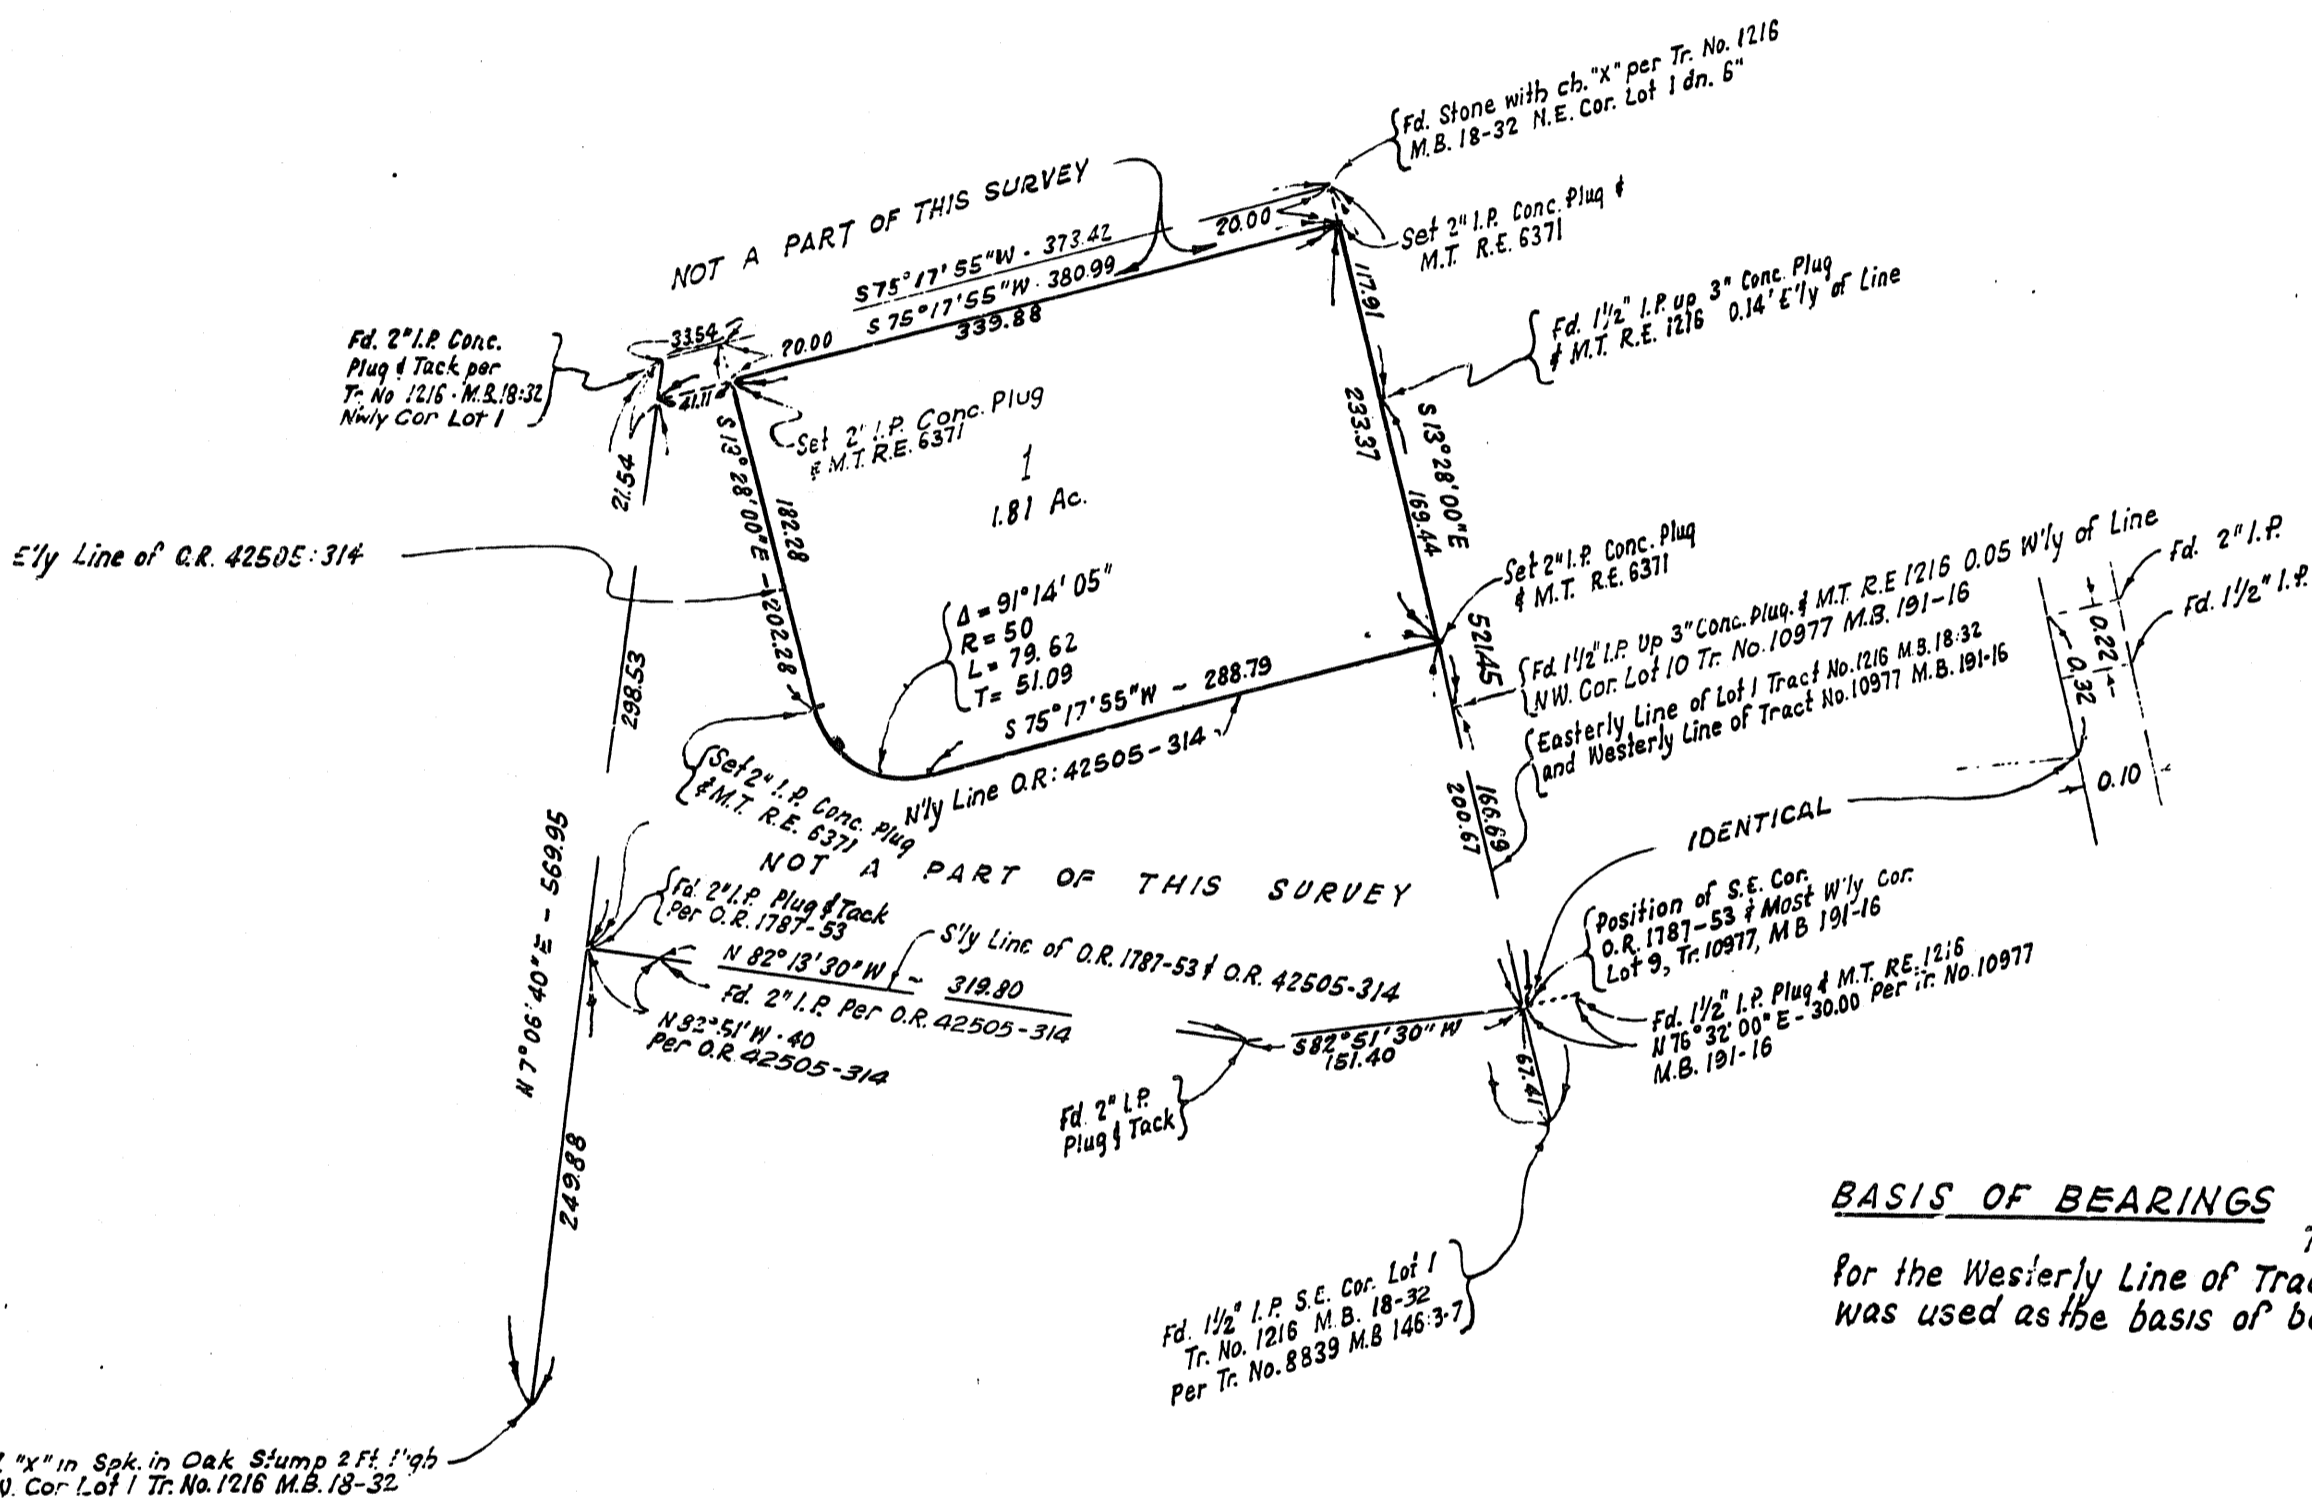 Fd. Stone with ch. "X" per Tr. No. 1216
M.B. 18-32 N.E. Cor. Lot 1 dn. 6"
NOT A PART OF THIS SURVEY
20.00
Set 2" I.P. Conc. Plug &
M.T. R.E. 6371
S75°17'55"W - 373.42
S 75°17'55"W - 380.99
339.88
117.91
Fd. 1½" I.P. up 3" Conc. Plug
& M.T. R.E. 1216 0.14' E'ly of Line
Fd. 2" I.P. Conc.
Plug & Tack per
Tr. No 1216 - M.B. 18:32
Nwly Cor Lot 1
33.54
20.00
41.11
Set 2" I.P. Conc. Plug
& M.T. R.E. 6371
1
1.81 Ac.
21.54
S 13°28'00"E - 202.28
182.28
233.37
S 13°28'00"E
169.44
E'ly Line of O.R. 42505:314
Set 2" I.P. Conc. Plug
& M.T. R.E. 6371
Δ = 91°14'05"
R = 50
L = 79.62
T = 51.09
S 75°17'55"W - 288.79
N'ly Line O.R: 42505-314
521.45
Fd. 1½" I.P. Up 3" Conc. Plug. & M.T. R.E 1216 0.05 W'ly of Line
NW. Cor. Lot 10 Tr. No. 10977 M.B. 191-16
Easterly Line of Lot 1 Tract No. 1216 M.B. 18:32
and Westerly Line of Tract No. 10977 M.B. 191-16
Fd. 2" I.P.
Fd. 1½" I.P.
0.22
0.32
0.10
298.53
Set 2" I.P. Conc. Plug
& M.T. R.E. 6371
166.69
200.67
IDENTICAL
NOT A PART OF THIS SURVEY
N 7°06'40"E - 569.95
Fd. 2" I.P. Plug & Tack
Per O.R. 1787-53
N 82°13'30"W - 319.80
S'ly Line of O.R. 1787-53 & O.R. 42505-314
Fd. 2" I.P. Per O.R. 42505-314
N 82°51'W - 40
Per O.R. 42505-314
Position of S.E. Cor.
O.R. 1787-53 & Most W'ly Cor.
Lot 9, Tr. 10977, M.B 191-16
Fd. 1½" I.P. Plug & M.T. RE. 1216
N 76°32'00" E - 30.00 Per Tr. No. 10977
M.B. 191-16
S82°51'30"W
151.40
67.41
Fd. 2" I.P.
Plug & Tack
249.88
Fd. 1½" I.P. S.E. Cor. Lot 1
Tr. No. 1216 M.B. 18-32
Per Tr. No. 8839 M.B 146:3-7
BASIS OF BEARINGS
for the Westerly Line of
was used as the basis of
"X" in Spk. in Oak Stump 2 Ft. High
Cor Lot 1 Tr. No. 1216 M.B. 18-32